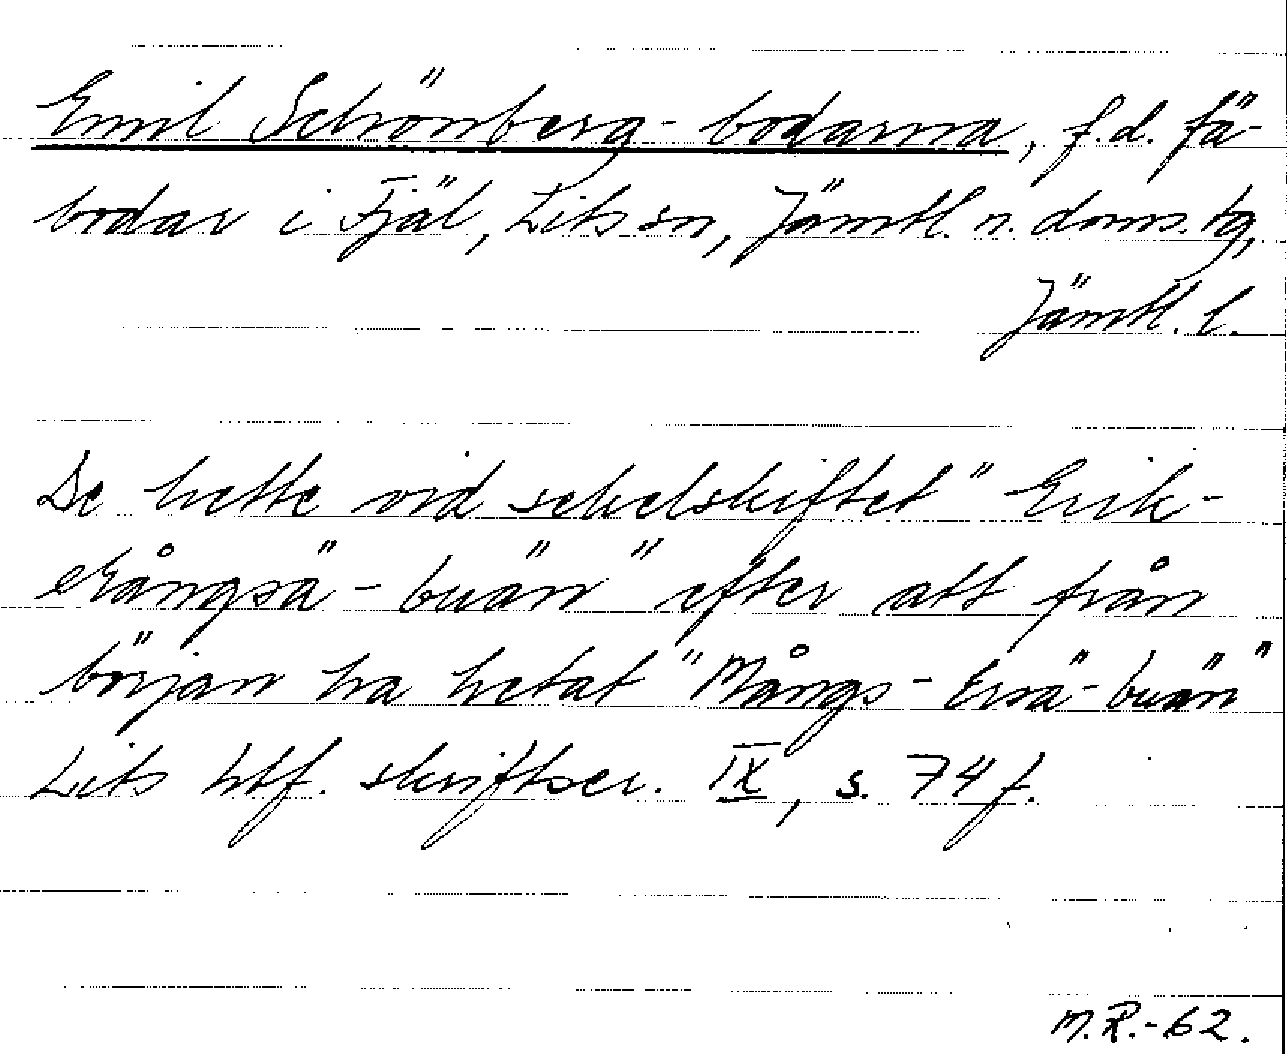 Emil Schönberg-bodarna, f.d. fä-
bodar i Fjäl, Lits sn, Jämtl. n. doms. tg,
Jämtl. l.
De hette vid sekelskiftet "Erik-
Mångsä-buän" efter att från
början ha hetat "Mångs-Ersä-buän"
Lits hbf. skriftser. IX, s. 74 f.
M.R.-62.